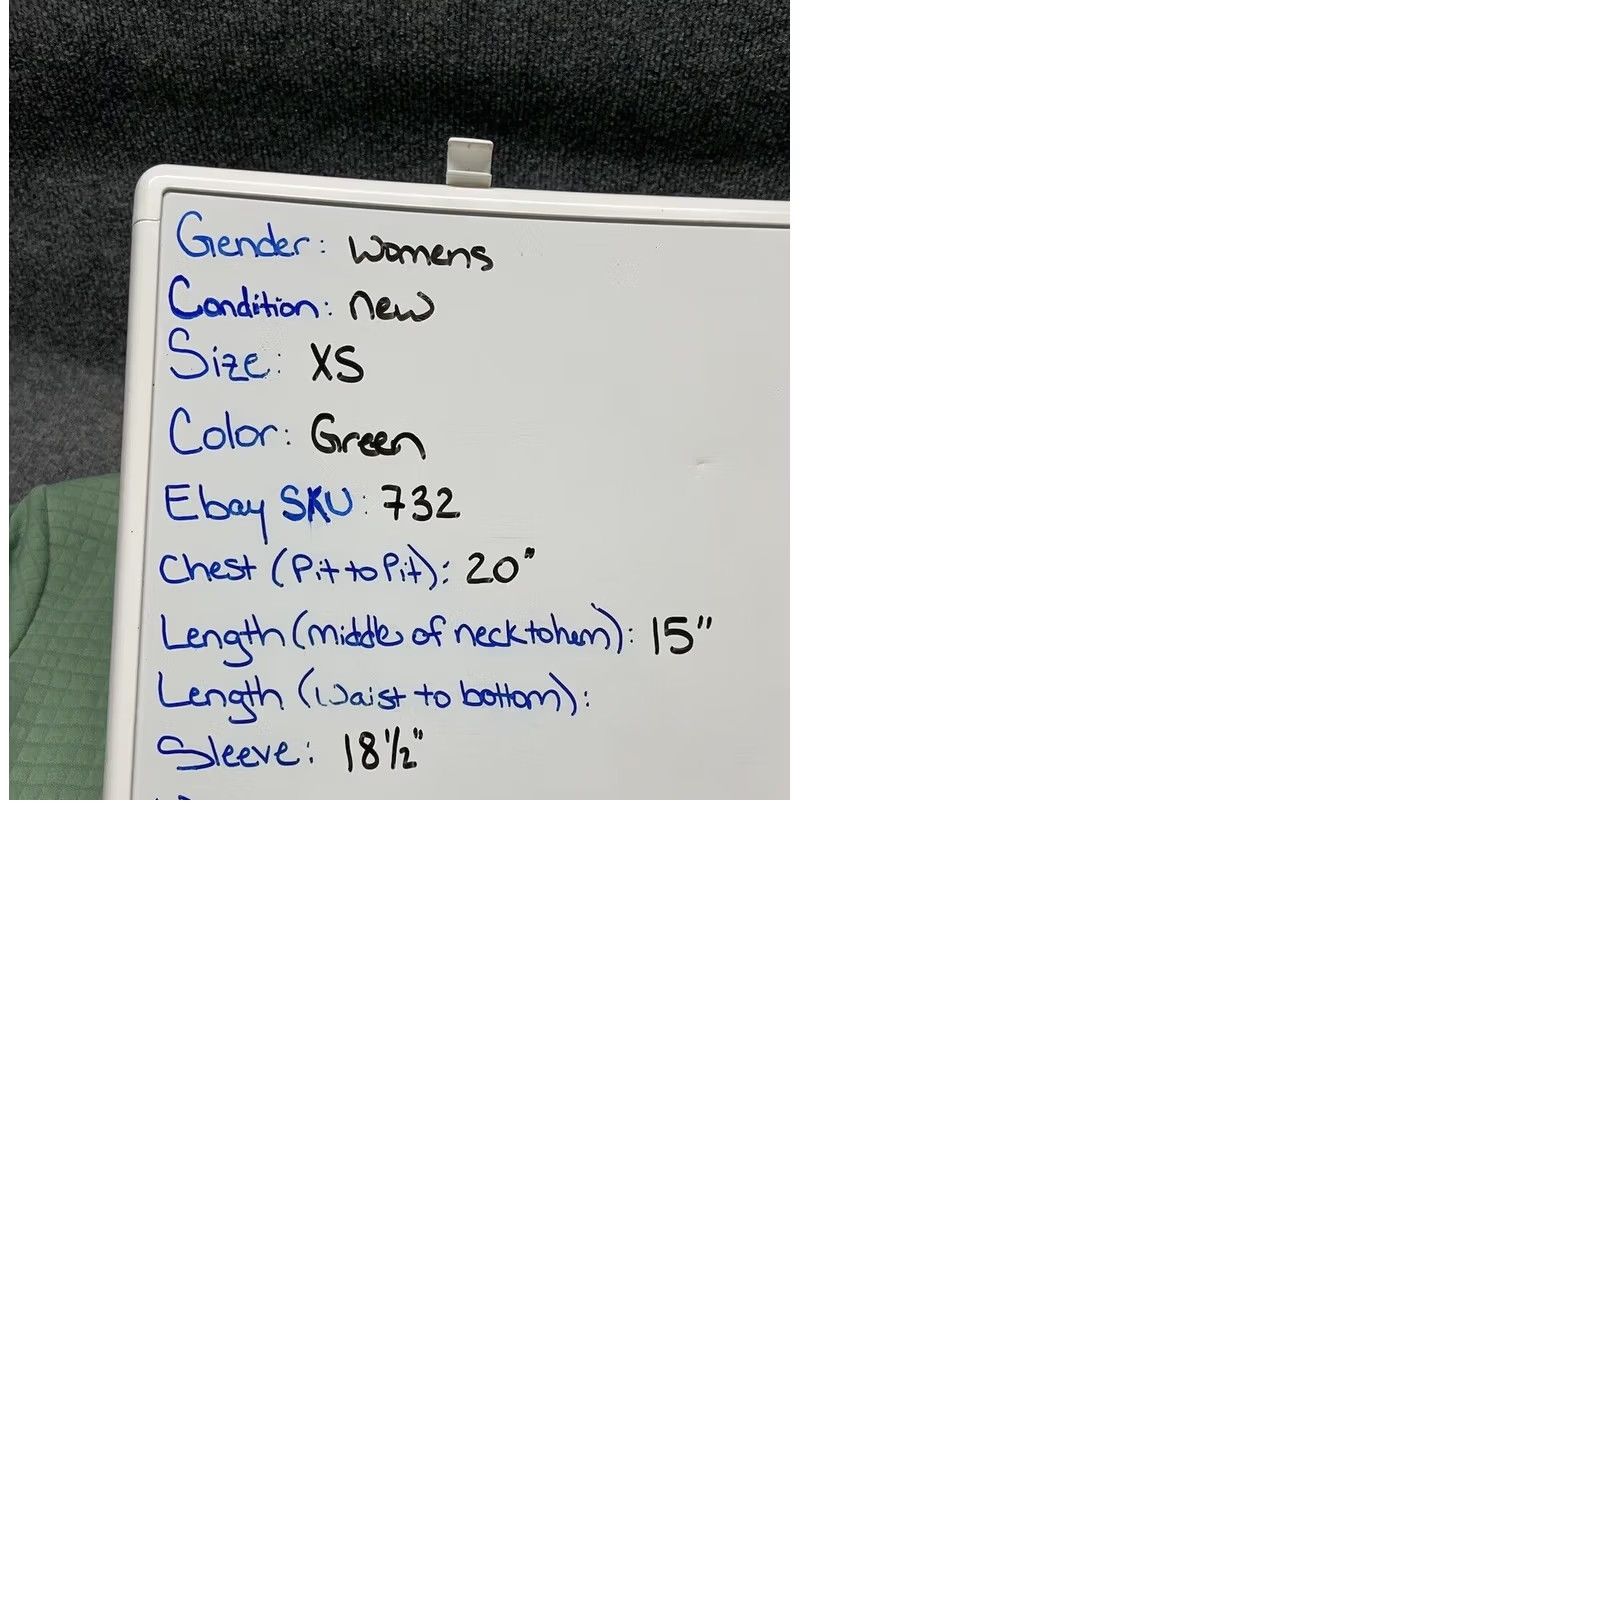 Gender: Womens
Condition: New
Size: XS
Color: Green
Ebay SKU: 732
Chest (Pit to Pit): 20"
Length (middle of neck to hem): 15"
Length (Waist to bottom):
Sleeve: 18 1/2"